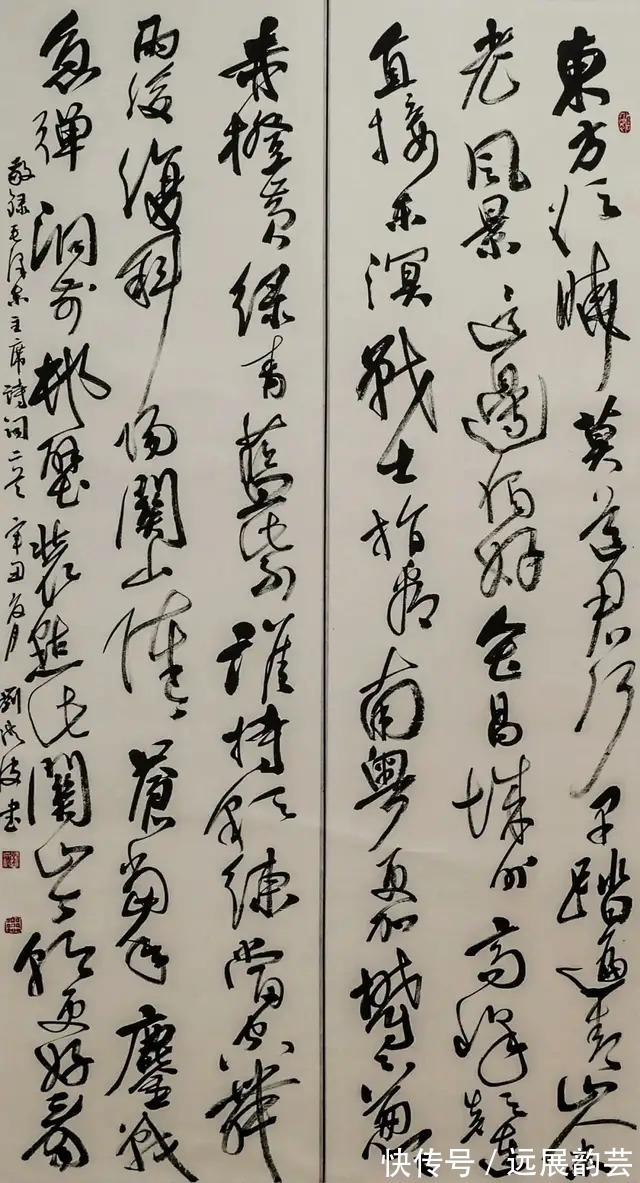 東方欲曉莫道君行早踏遍青山人未
老風景这邊獨好会昌城外高峰巔連
直接东溟戰士指看南粤更加鬱鬱葱葱
赤橙黄绿青藍紫誰持彩練當空舞
雨後復斜陽關山陣陣蒼當年鏖戰
急彈洞前村壁裝點此關山今朝更好看
敬録毛泽东主席詩词二首 辛丑 月 劉 波書
快传号 / 远展韵芸